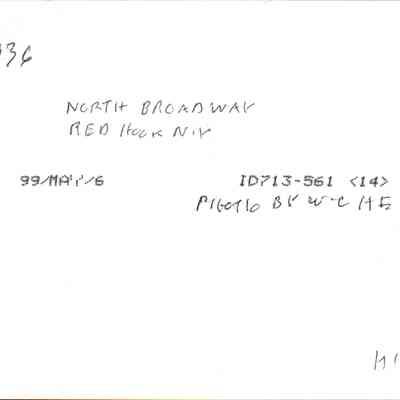 936
NORTH BROADWAY
RED HOOK N.Y
99/MAY/6
ID713-561 <14>
PHOTO BY
H